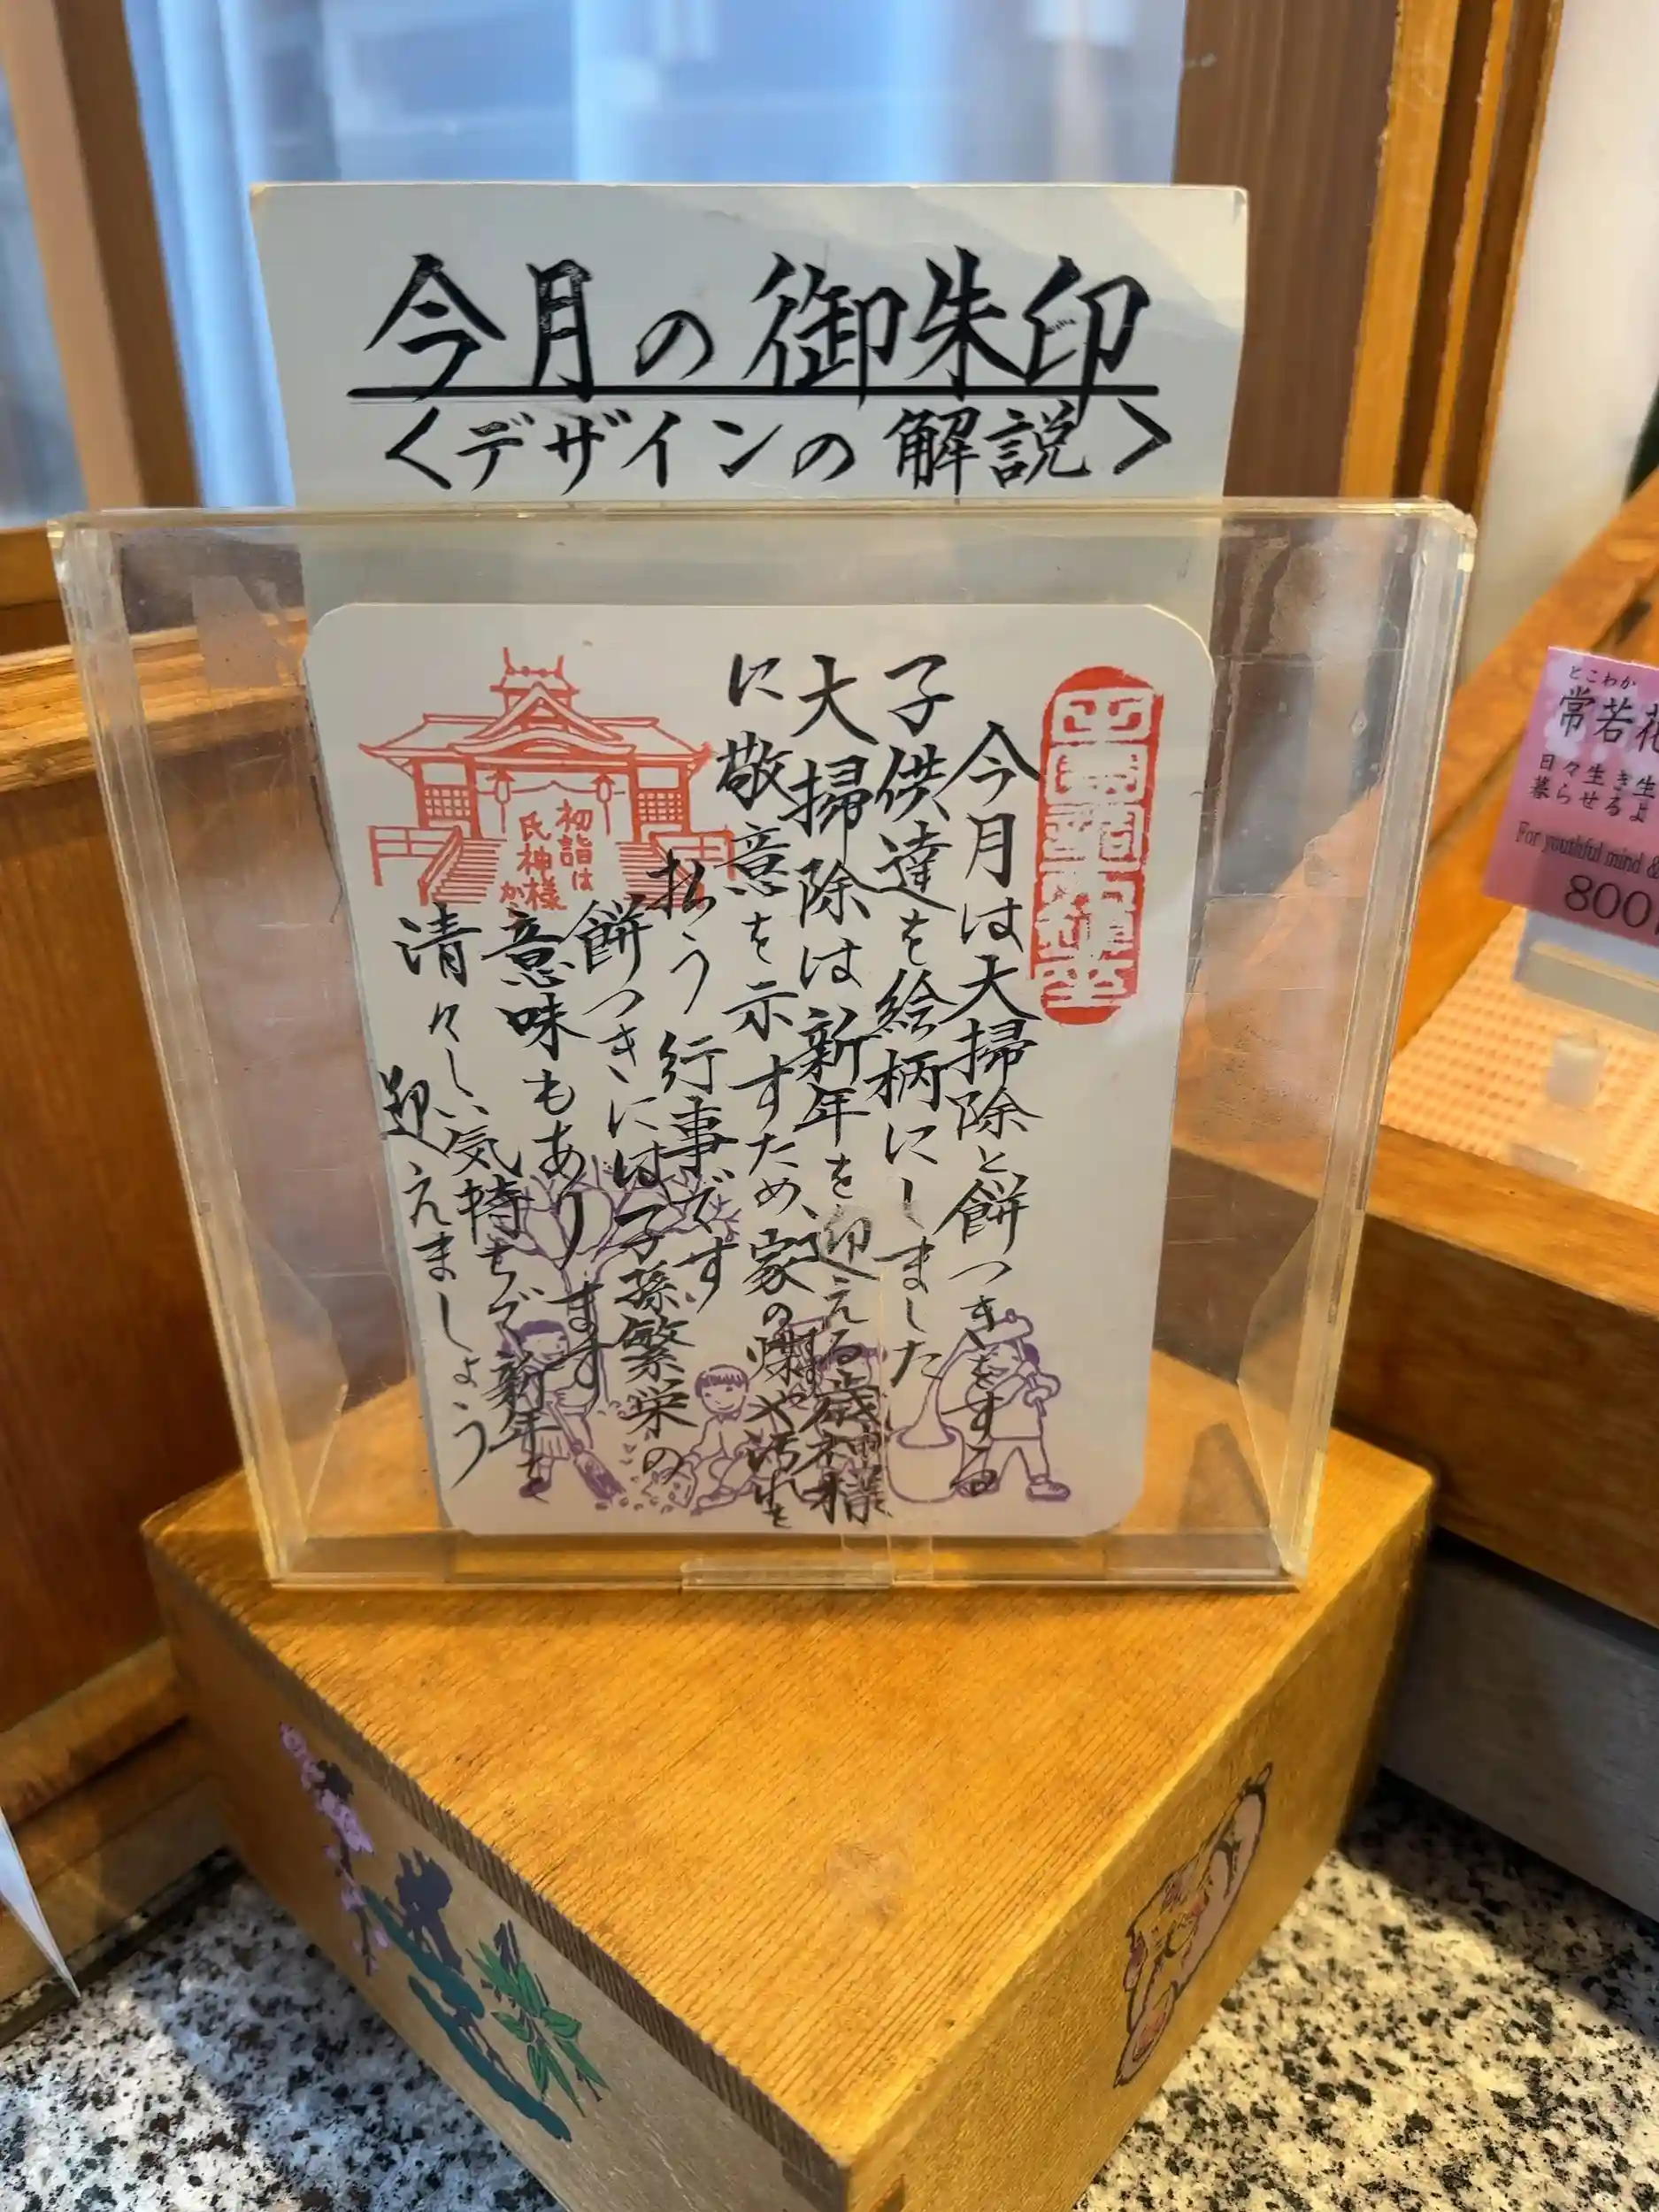 今月の御朱印
<デザインの解説>
今月は大掃除と、餅つきをする
子供達を絵柄にしました
大掃除は新年を迎える歳神様
に敬意を示すため、家の煤や汚れを
払う行事です
餅つきには子孫繁栄の
意味もあります
清々しい気持ちで新年を
迎えましょう
初詣は
氏神様
か
とこわか
常若花
日々生き生
暮らせるよ
For youthful mind &
800